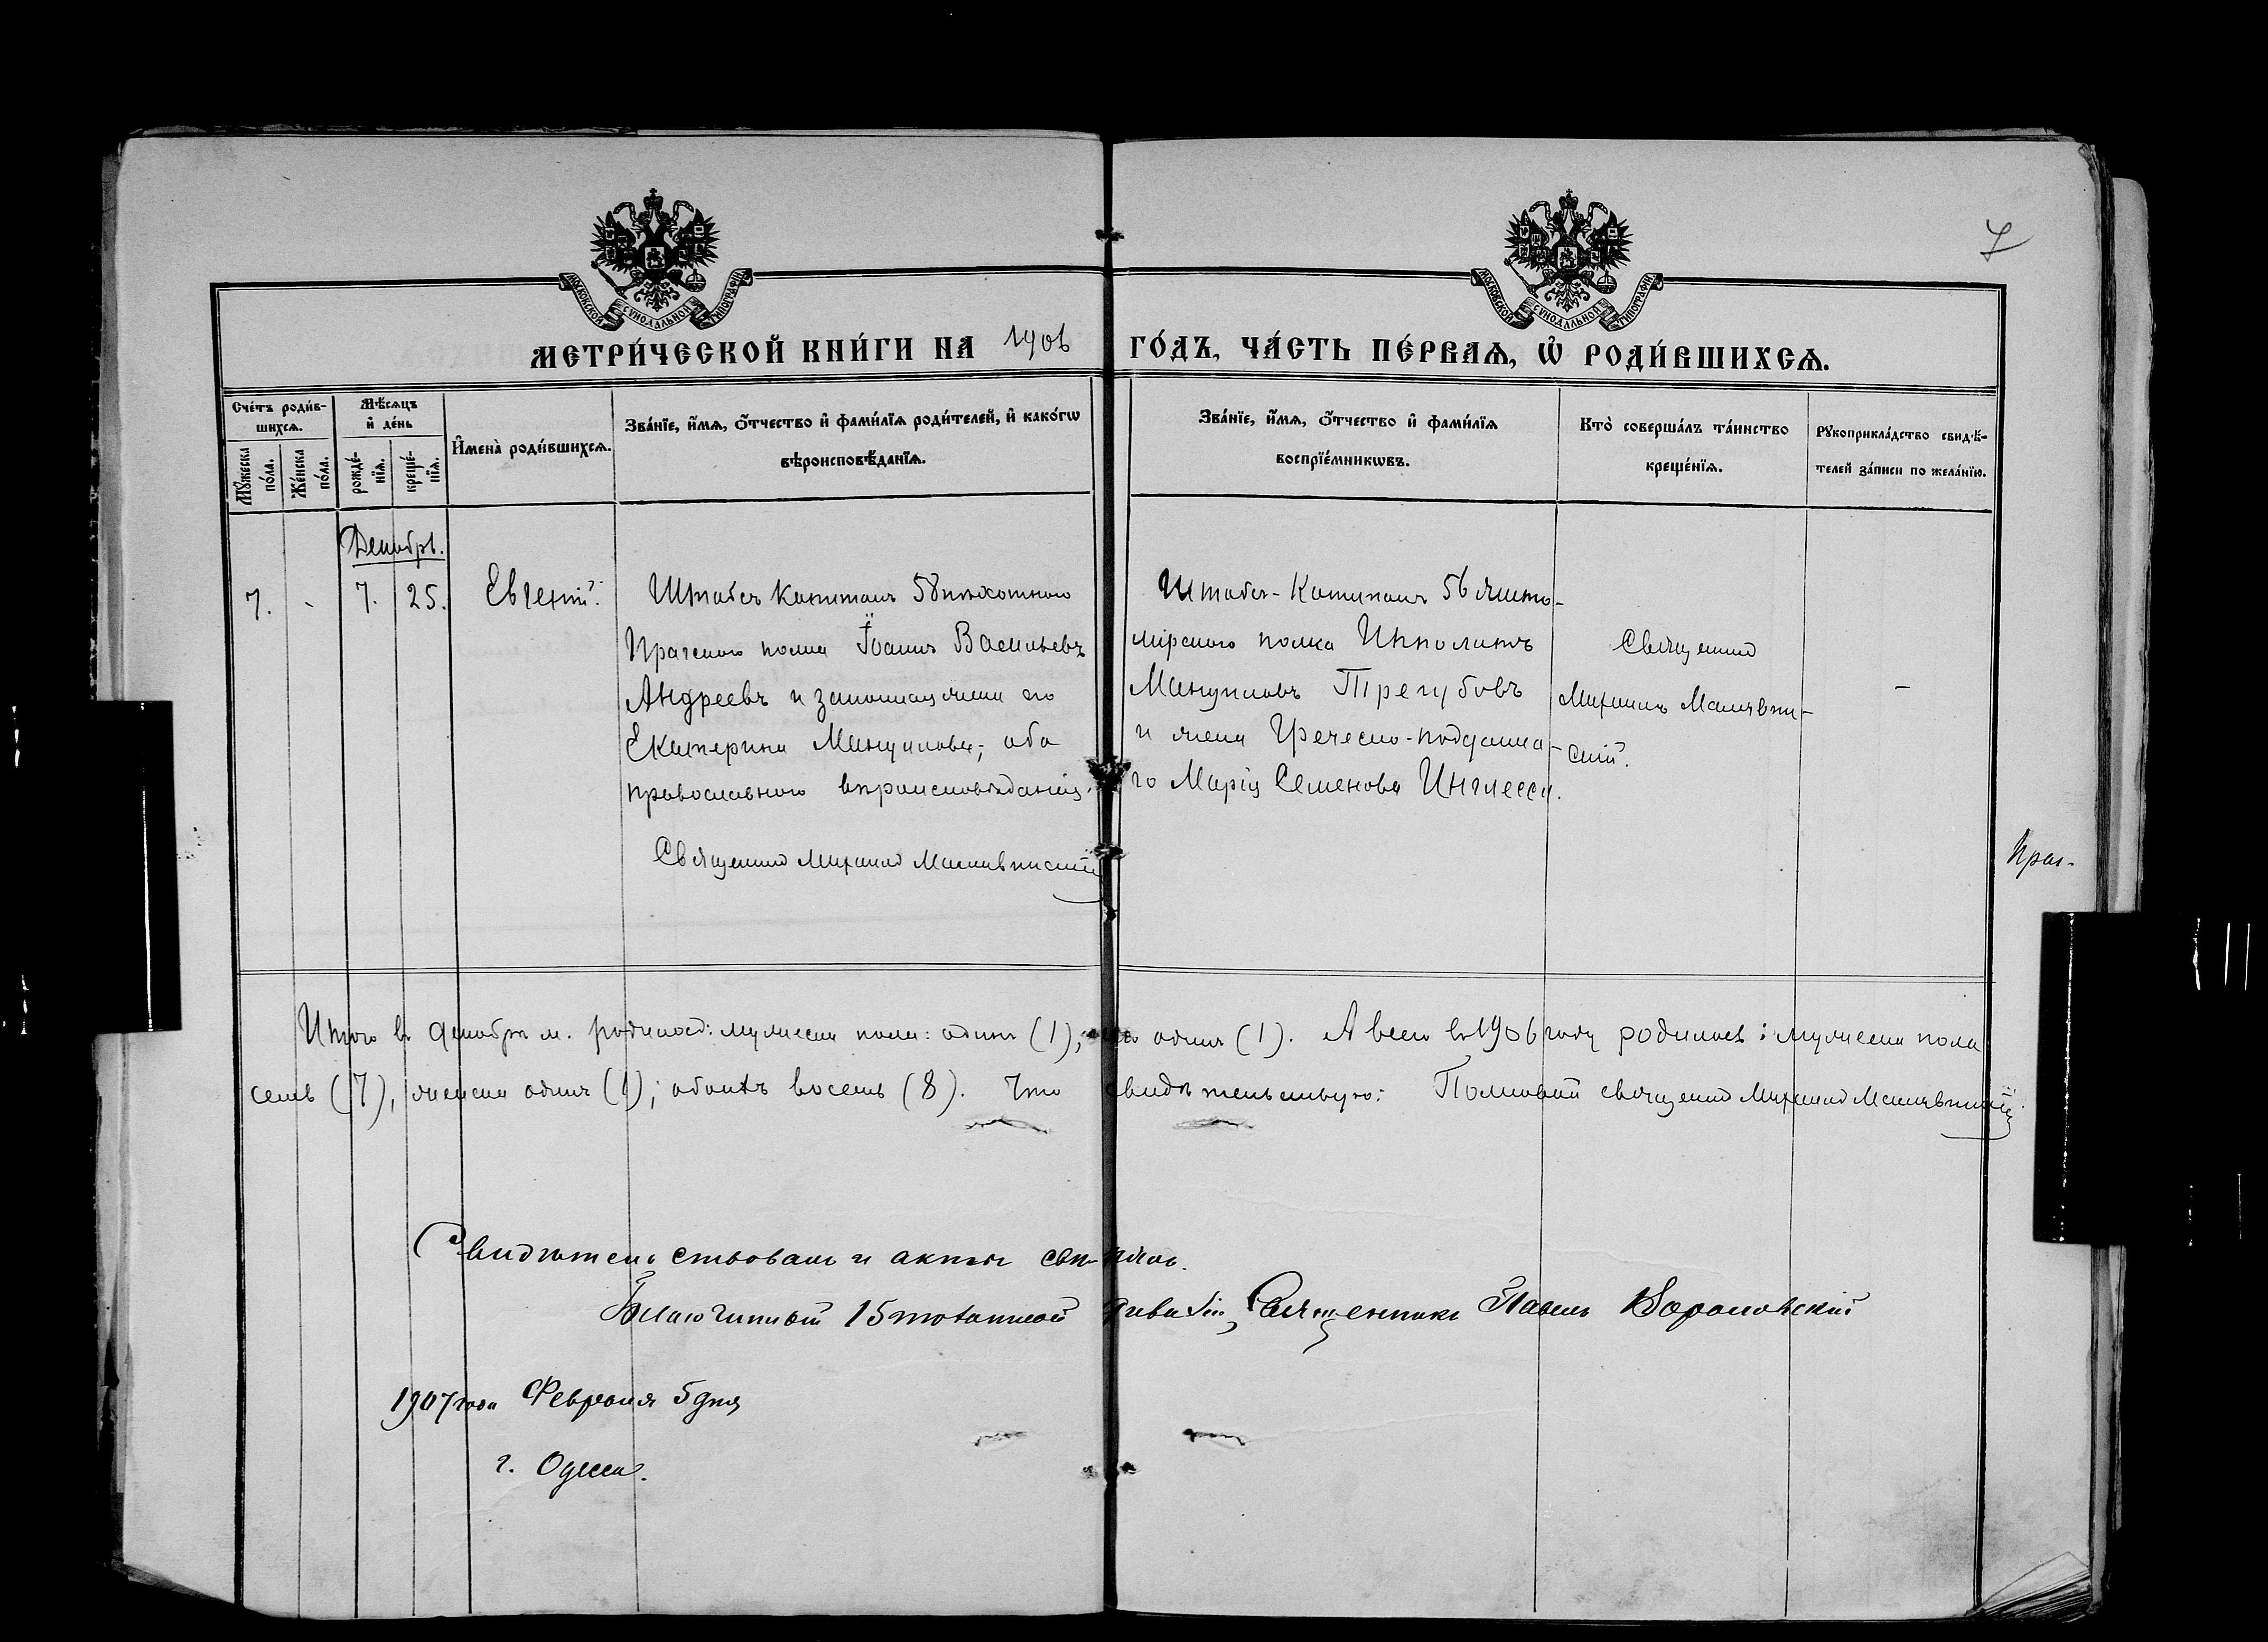 7
МОСКОВСКОЙ СУНОДАЛЬНОЙ ТИПОГРАФІИ
МОСКОВСКОЙ СУНОДАЛЬНОЙ ТИПОГРАФІИ
МЕТРИ́ЧЕСКОЙ КНИ́ГИ НА 1906 ГО́ДЪ, ЧА́СТЬ ПЕ́РВАѦ, Ѡ҆ РОДИ́ВШИХСѦ.
Сче́тъ роди́в-
шихсѧ.
Мѣ́сѧцъ
и҆ де́нь
Мꙋ́жеска
по́ла.
Же́нска
по́ла.
рожде́-
нїѧ.
креще́-
нїѧ.
И҆мена̀ роди́вшихсѧ.
Зва́нїе, и҆́мѧ, ѻ҆́тчество и҆ фами́лїѧ роди́телей, и҆ како́гѡ
вѣроисповѣ́данїѧ.
Зва́нїе, и҆́мѧ, ѻ҆́тчество и҆ фами́лїѧ
воспрїе́мникѡвъ.
Кто̀ соверша́лъ та́инство
креще́нїѧ.
Рꙋкоприкла́дство свидѣ́-
телей за́писи по жела́нїю.
Декабрь.
7. - 7. 25. Евгеній.
Штабсъ Капитанъ 58 пѣхотнаго
Прагскаго полка Іоаннъ Васильевъ
Андреевъ и законная жена его
Екатерина Мануилова; оба
православнаго вѣроисповѣданія.
Священникъ Михаилъ
Штабсъ-Капитанъ 56 Жито-
мірскаго полка Ипполитъ
Мануиловъ Трегубовъ
и жена Греческо-подданна-
го Марія Семенова Инглесси.
Священникъ
Михаилъ
скій.
-
Праг-
Итого въ Декабрѣ м. родилось: мужеска пола: одинъ (1); одинъ (1). А всего въ 1906 году родилось: мужеска пола
семь (7), женска одинъ (1); обоихъ восемь (8). Что свидѣтельствую: Полковой священникъ Михаилъ
Свидѣтельствовалъ и акты
Благочинный 15 пѣхотной дивизіи, Священникъ Павелъ
1907 года Февраля 5 дня
г. Одесса.